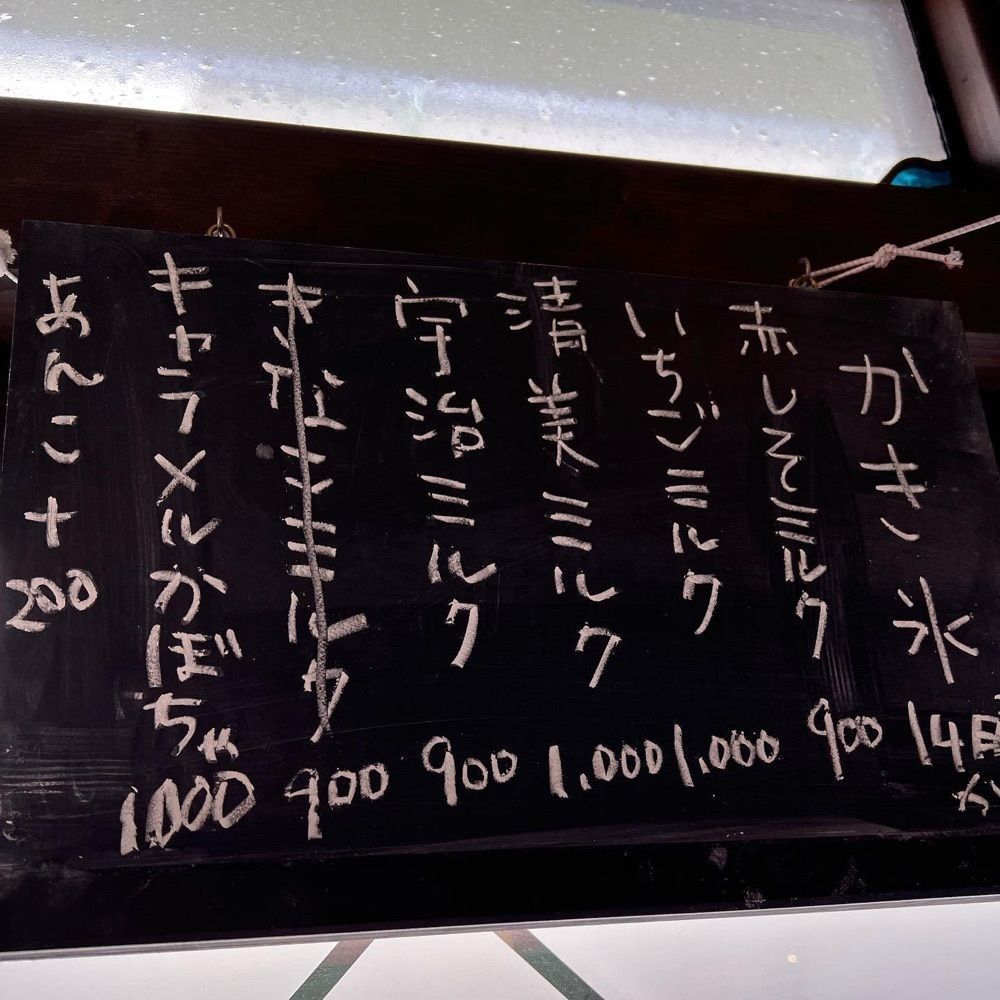 かき氷 14日
から
赤しそミルク 900
いちごミルク 1,000
清美ミルク 1,000
宇治ミルク 900
キャラメルかぼちゃ 1000
あんこ+200